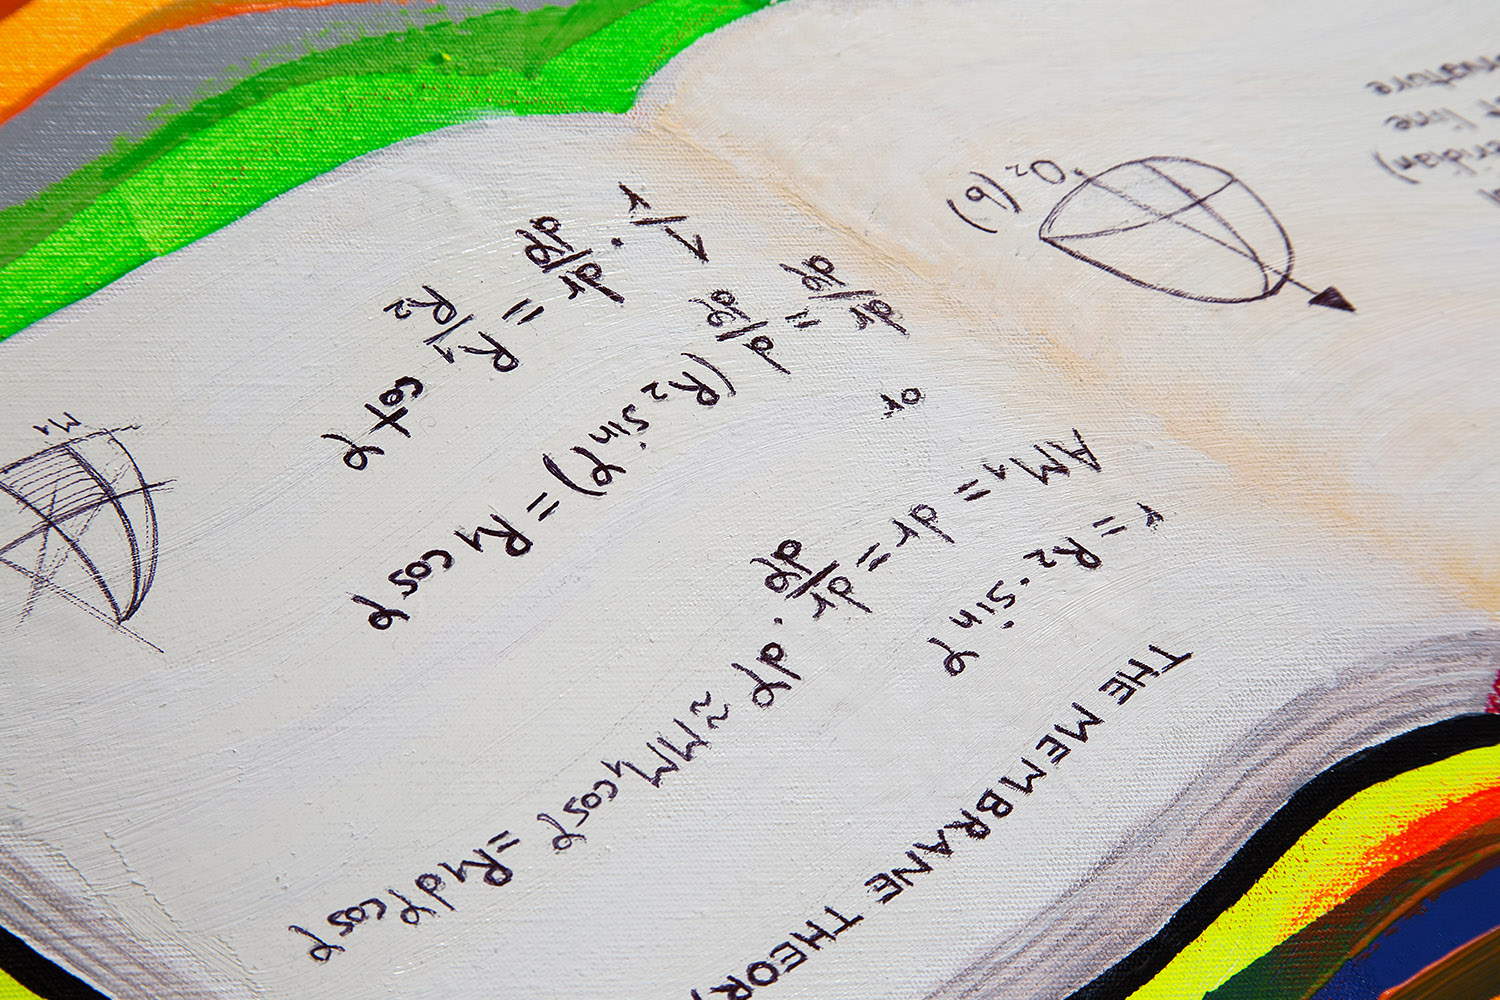 THE MEMBRANE THEORY
r = R₂ · sin φ
AM₁ = dr = dr/dφ · dφ ≈ MM₁ cos φ = R₁ dφ cos φ
or
dr/dφ = d/dφ (R₂ sin φ) = R₁ cos φ
1/r · dr/dφ = R₁/R₂ cot φ
M₁
O₂ (b)
line